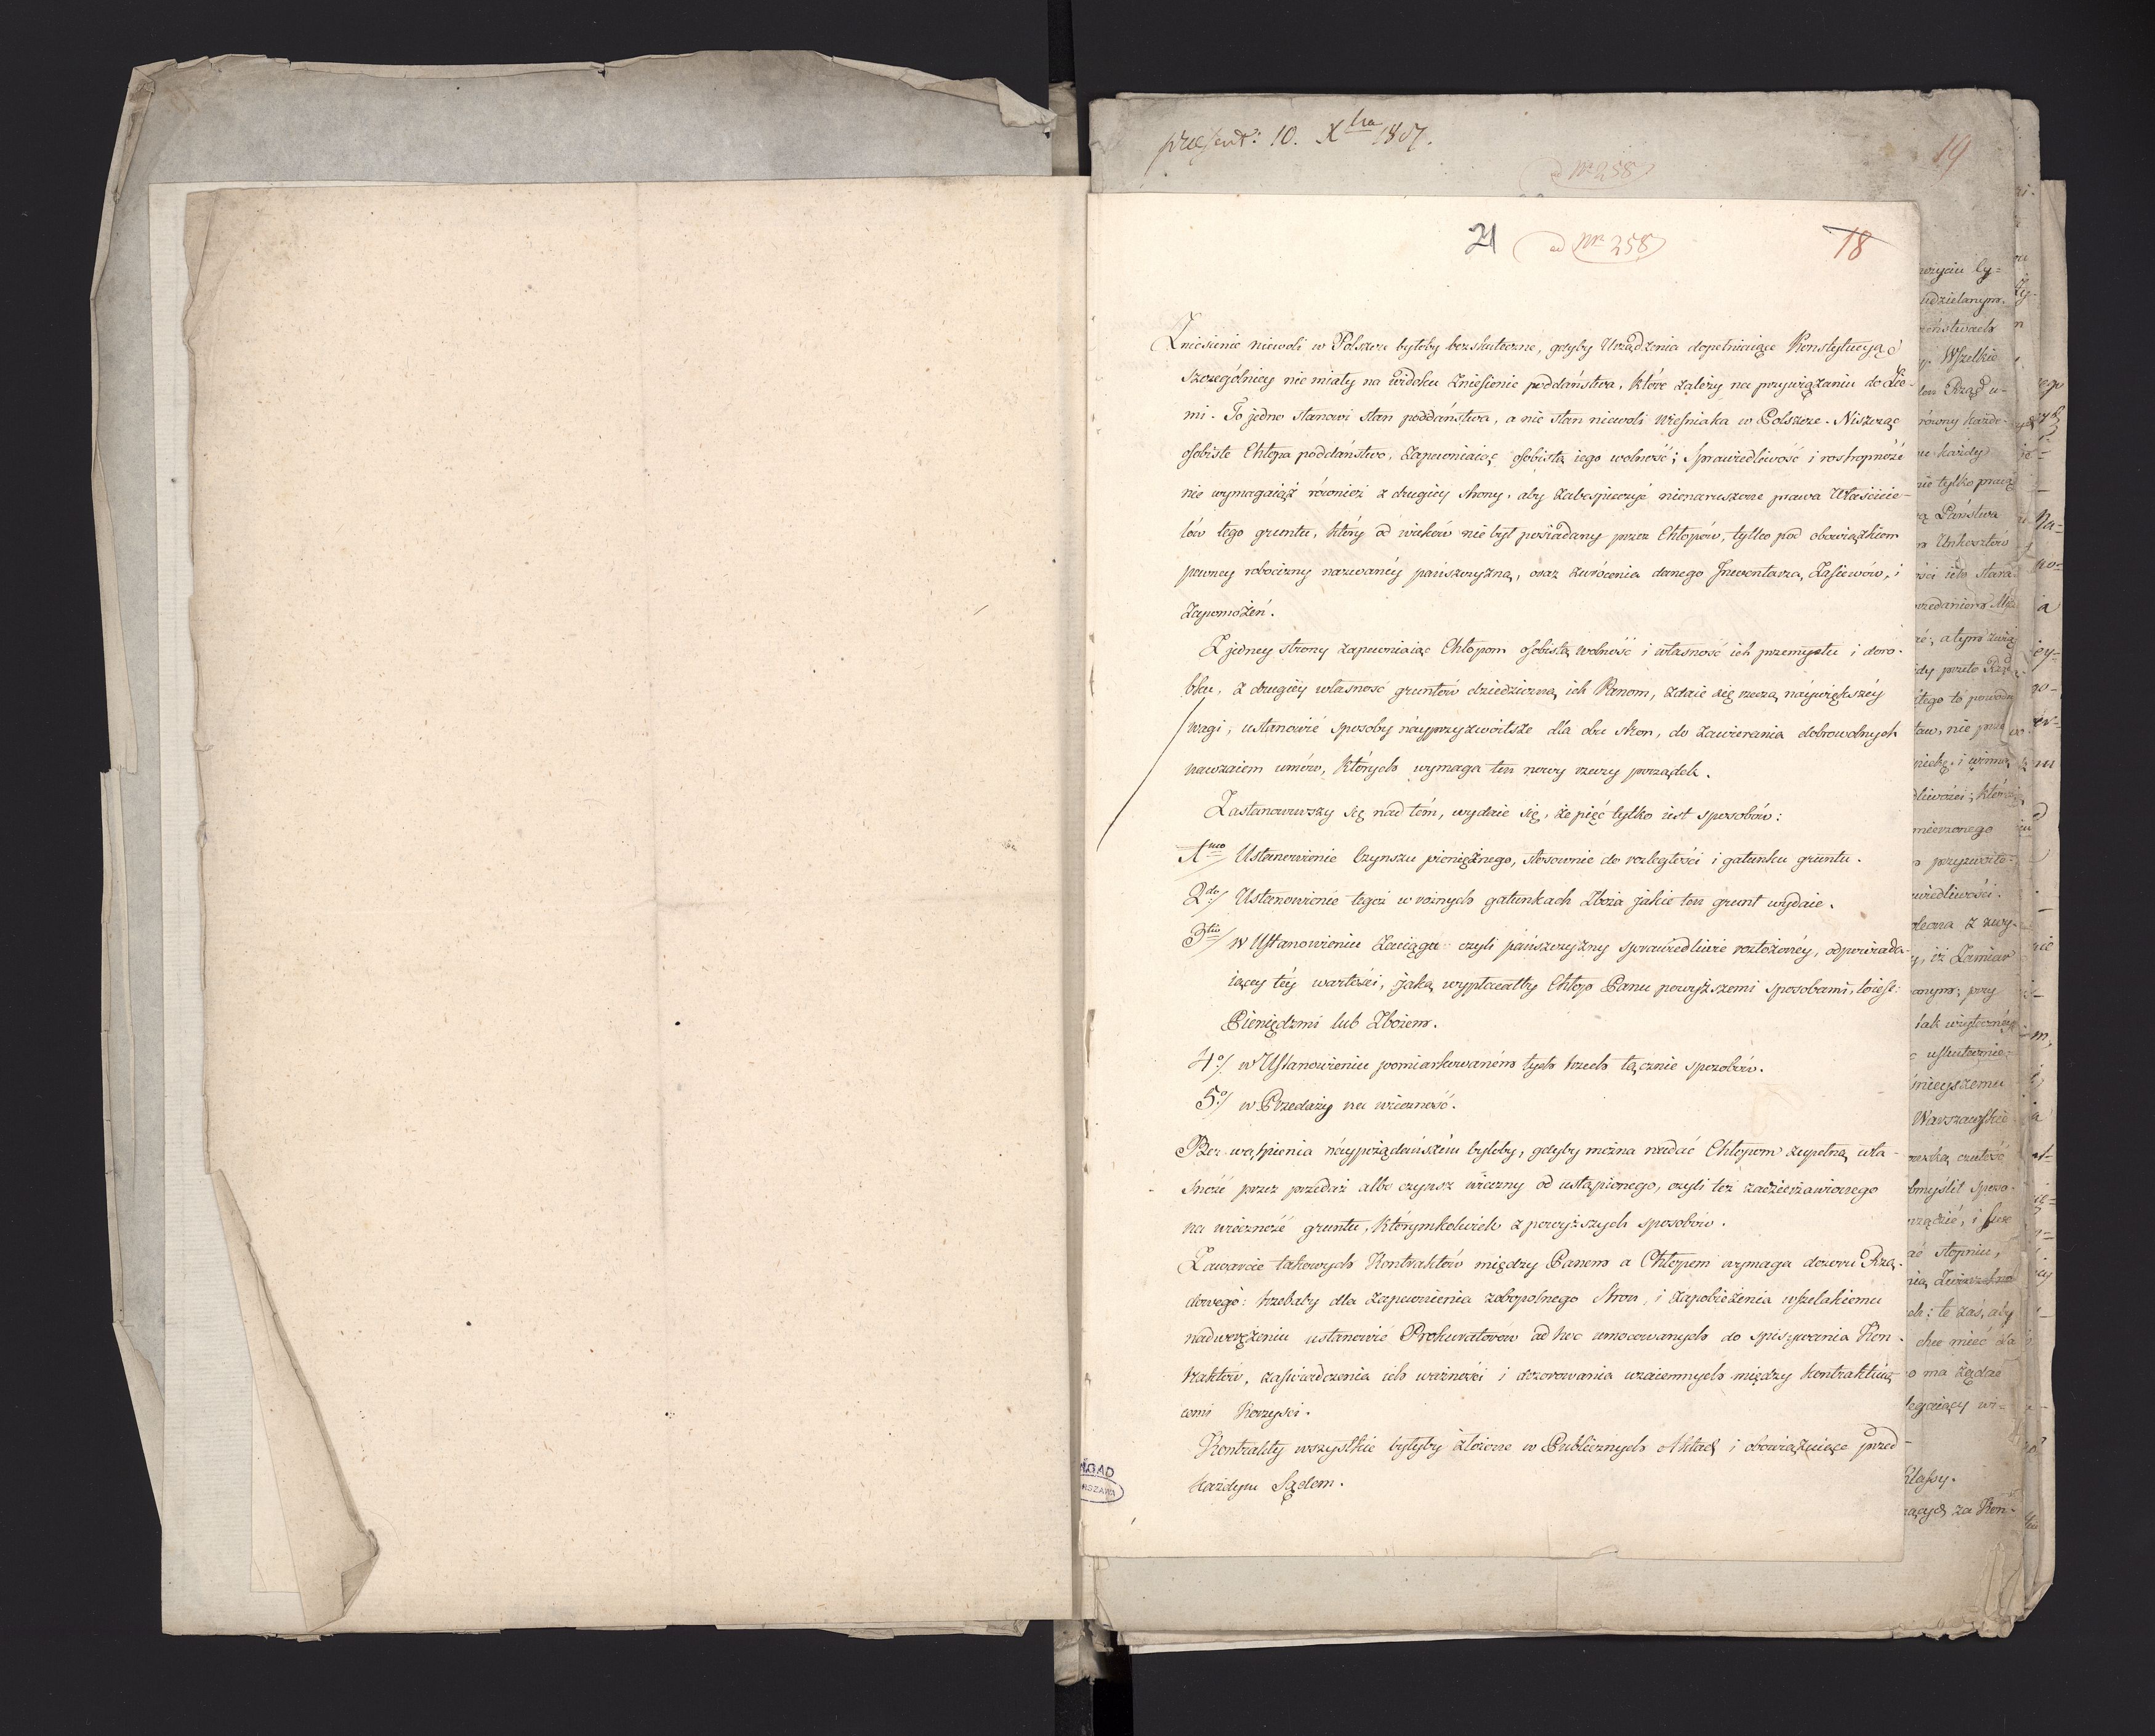 present: 10. Xbra 1807.
19
ad Nr 258
21 ad Nr 258 18
Zniesienie niewoli w Polszcze byłoby bezskuteczne, gdyby Urządzenia dopełniaiące Konstytucyą
szczególniey nie miały na widoku zniesienie poddaństwa, które zależy na przywiązaniu do Zie-
mi. To jedno stanowi stan poddaństwa, a nie stan niewoli Wieśniaka w Polszcze. Niszcząc
osobiste Chłopa poddaństwo, zapewniaiąc osobistą iego wolność; Sprawiedliwość i rostropność
nie wymagaiąż również z drugiey strony, aby zabespieczyć nienaruszone prawa Właścicie-
lów tego gruntu, który od wieków nie był posiadany przez Chłopów, tylko pod obowiązkiem
pewney robocizny nazwanéy pańszczyzną, oraz zwrócenia danego Inwentarza, Zasiewów, i
Zapomożeń.
Z jedney strony zapewniaiąc Chłopom osobistą wolność i własność ich przemysłu i doro-
bku, z drugiéy własność gruntów dziedziczną ich Panom, zdaie się rzeczą náywiększéy
wagi, ustanowić sposoby náyprzyzwoitsze dla obu stron, do zawierania dobrowolnych
nawzaiem umów, których wymaga ten nowy rzeczy porządek.
Zastanowiwszy się nad tém, wydaie się, że pięć tylko iest sposobów:
1mo/ Ustanowienie Czynszu pieniężnego, stosownie do rozległości i gatunku gruntu.
2do/ Ustanowienie tegoż w roźnych gatunkach Zboża jakie ten grunt wydaie.
3tio/ w Ustanowieniu Zaciągu czyli pańszczyzny sprawiedliwie rozłożonéy, odpowiada-
iącey téy wartości, jaką wypłacałby Chłop Panu powyższemi sposobami, to iest:
Pieniędzmi lub Zbożem.
4o/ w Ustanowieniu pomiarkowaném tych trzech łącznie sposobów.
5o/ w Przedaży na wieczność.
Bez wątpienia náypożądańszém byłoby, gdyby można nadać Chłopom zupełną wła-
sność przez przedaż albo czynsz wieczny od ustąpionego, czyli też zadzierżawionego
na wieczność gruntu, którymkolwiek z powyższych sposobów.
Zawarcie takowych Kontraktów między Panem a Chłopem wymaga dozoru Rzą-
dowego: trzebaby dla zapewnienia zobopolnego Stron, i zapobieżenia wszelakiemu
nadwerężeniu ustanowić Prokuratorów ad hoc umocowanych do spisywania Kon-
traktów, zaświadczenia ich ważności i dozorowania wzaiemnych między kontraktuią-
cemi Korzyści.
Kontrakty wszystkie byłyby złożone w Publicznych Aktach i obowiązuiące przed
każdym Sądem.